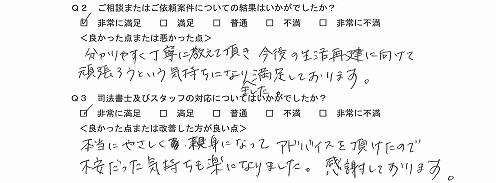 Q２ ご相談またはご依頼案件についての結果はいかがでしたか？
☑ 非常に満足 □ 満足 □ 普通 □ 不満 □ 非常に不満
＜良かった点または悪かった点＞
分かりやすく丁寧に教えて頂き今後の生活再建に向けて
頑張ろうという気持ちになりました。満足しております。
Q３ 司法書士及びスタッフの対応についてはいかがでしたか？
☑ 非常に満足 □ 満足 □ 普通 □ 不満 □ 非常に不満
＜良かった点または改善した方が良い点＞
本当にやさしく親身になってアドバイスを頂けたので
不安だった気持ちも楽になりました。感謝しております。